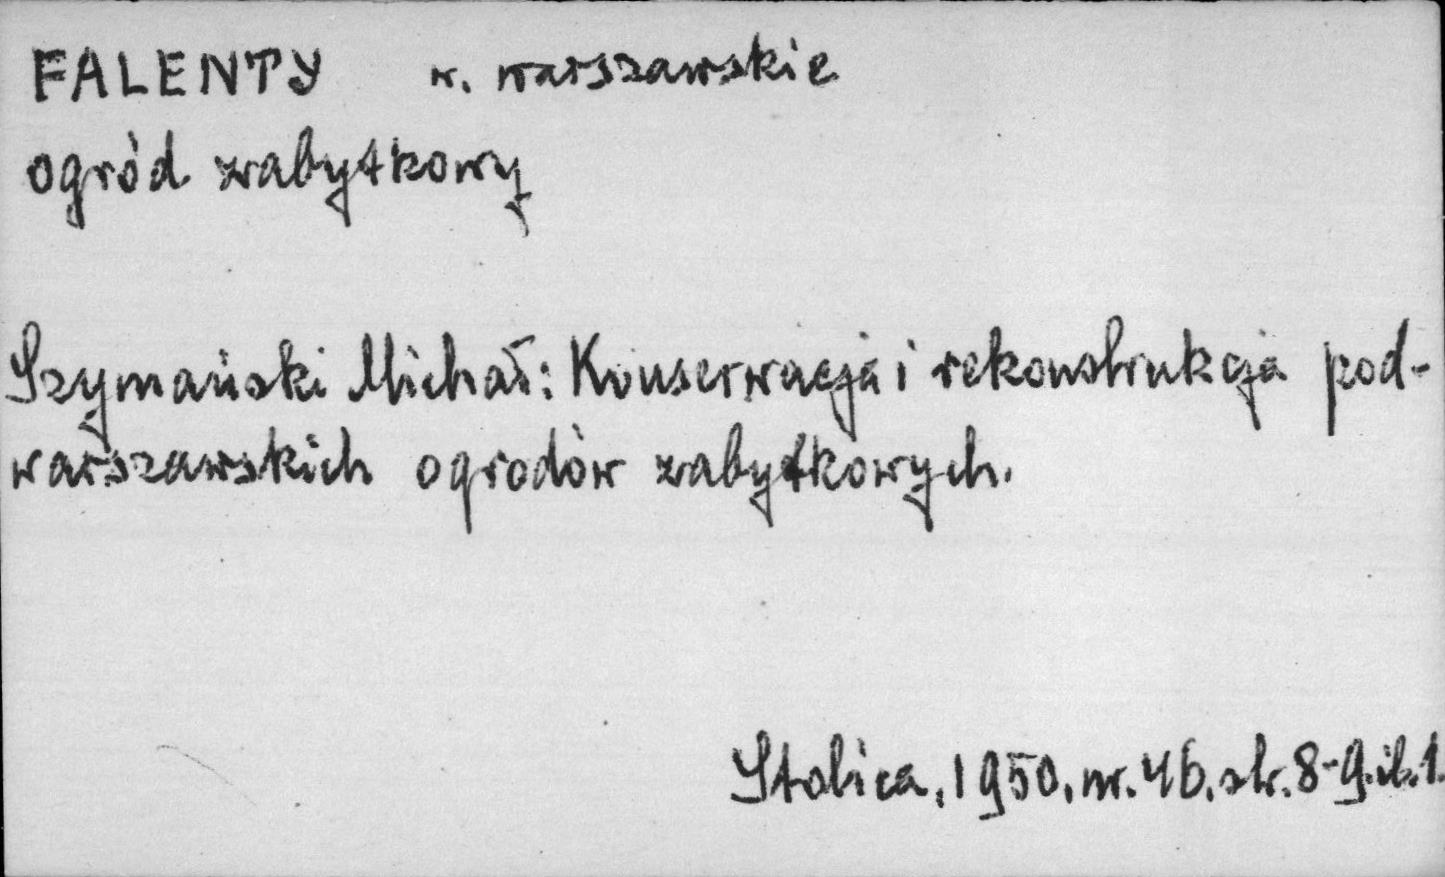 FALENTY w. warszawskie
ogród zabytkowy
Szymański Michał: Konserwacja i rekonstrukcja pod-
warszawskich ogrodów zabytkowych.
Stolica, 1950, nr. 46, str. 8-9. il. 1.